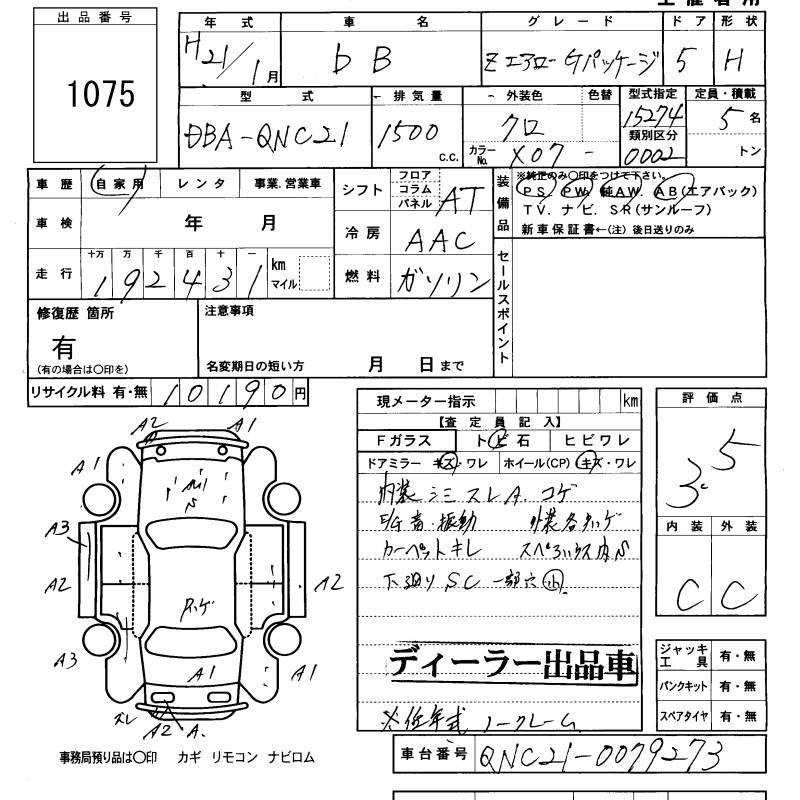 出品番号
1075
年式 車名 グレード ドア 形状
H21/1月 bB Zエアロ-Gパッケージ 5 H
型式 排気量 外装色 色替 型式指定 定員・積載
DBA-QNC21 1500 c.c. クロ 15274 5名
カラーNo. X07 - 類別区分 0002 トン
車歴 自家用 レンタ 事業.営業車
車検 年 月
走行 十万 万 千 百 十 一
192431 km マイル
シフト フロア コラム パネル AT
冷房 AAC
燃料 ガソリン
装備品
※純正のみ〇印をつけて下さい。
PS. PW. 純AW. AB(エアバック)
TV. ナビ. SR(サンルーフ)
新車保証書←(注) 後日送りのみ
セールスポイント
修復歴 箇所
有
(有の場合は〇印を)
注意事項
名変期日の短い方 月 日まで
リサイクル料 有・無 10190円
現メーター指示 km
【査定員記入】
Fガラス トビ石 ヒビワレ
ドアミラー キズ・ワレ ホイール(CP) キズ・ワレ
内装 シミ スレ A. コゲ
E/G音・振動 外装各タッチ
カーペットキレ
下廻り SC 一部穴 小
ディーラー出品車
※低年式 ノークレーム
車台番号 QNC21-0079273
評価点
3.5
内装 外装
C C
ジャッキ工具 有・無
パンクキット 有・無
スペアタイヤ 有・無
A2 A1
A1 A1
A3
A2 A2
A3 A1
A1
ズレ
A2 A.
事務局預り品は〇印 カギ リモコン ナビロム